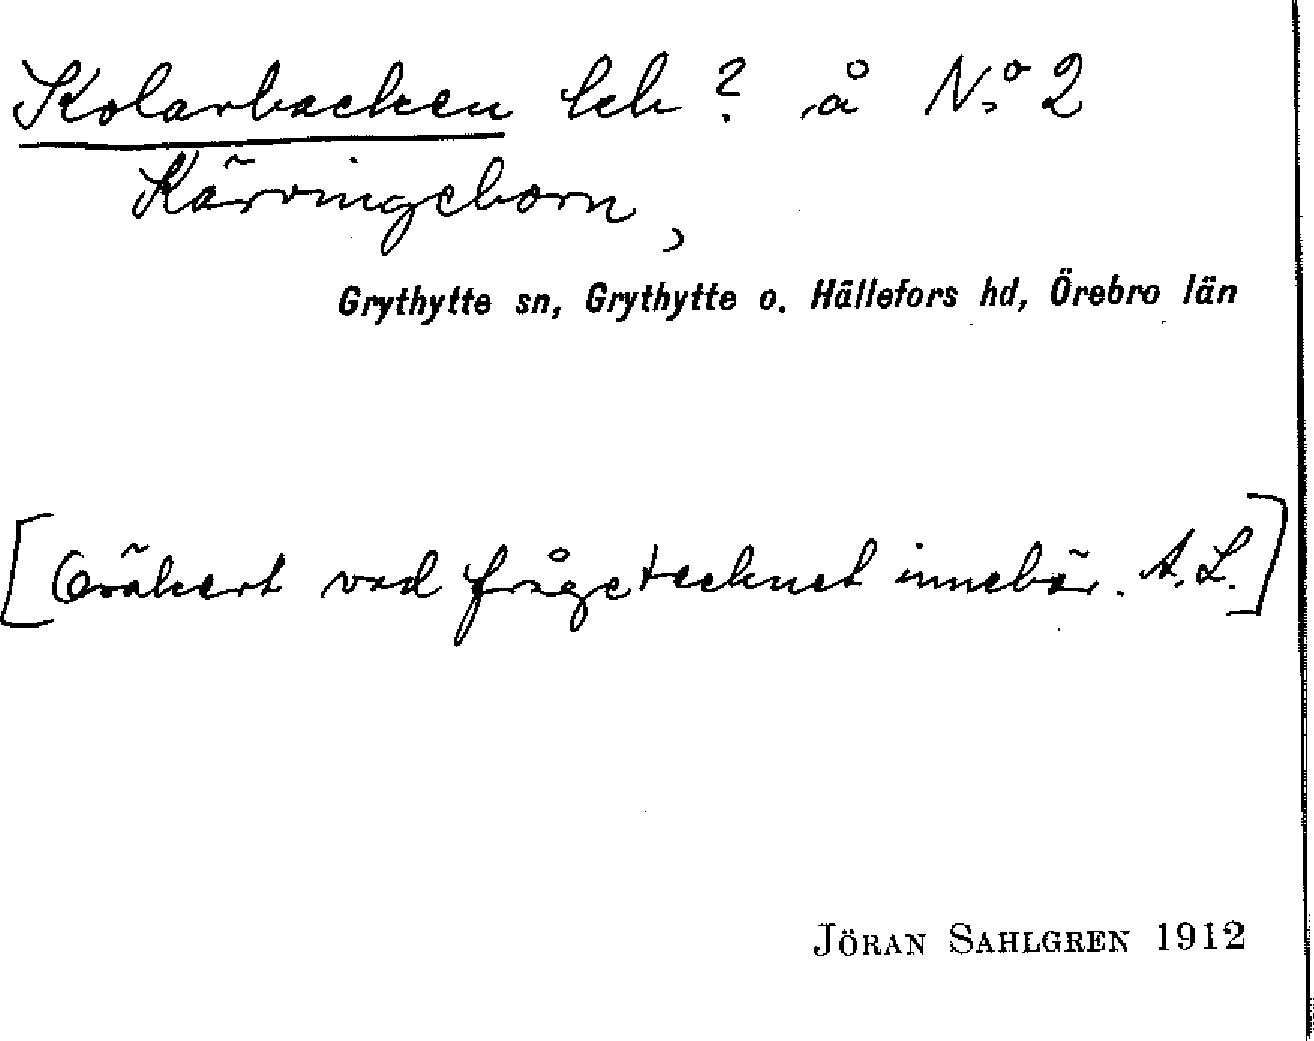 Kolarbacken lch? å No 2
Kärvingeborn,
Grythytte sn, Grythytte o. Hällefors hd, Örebro län
[Osäkert vad frågetecknet innebär. A.L.]
JÖRAN SAHLGREN 1912